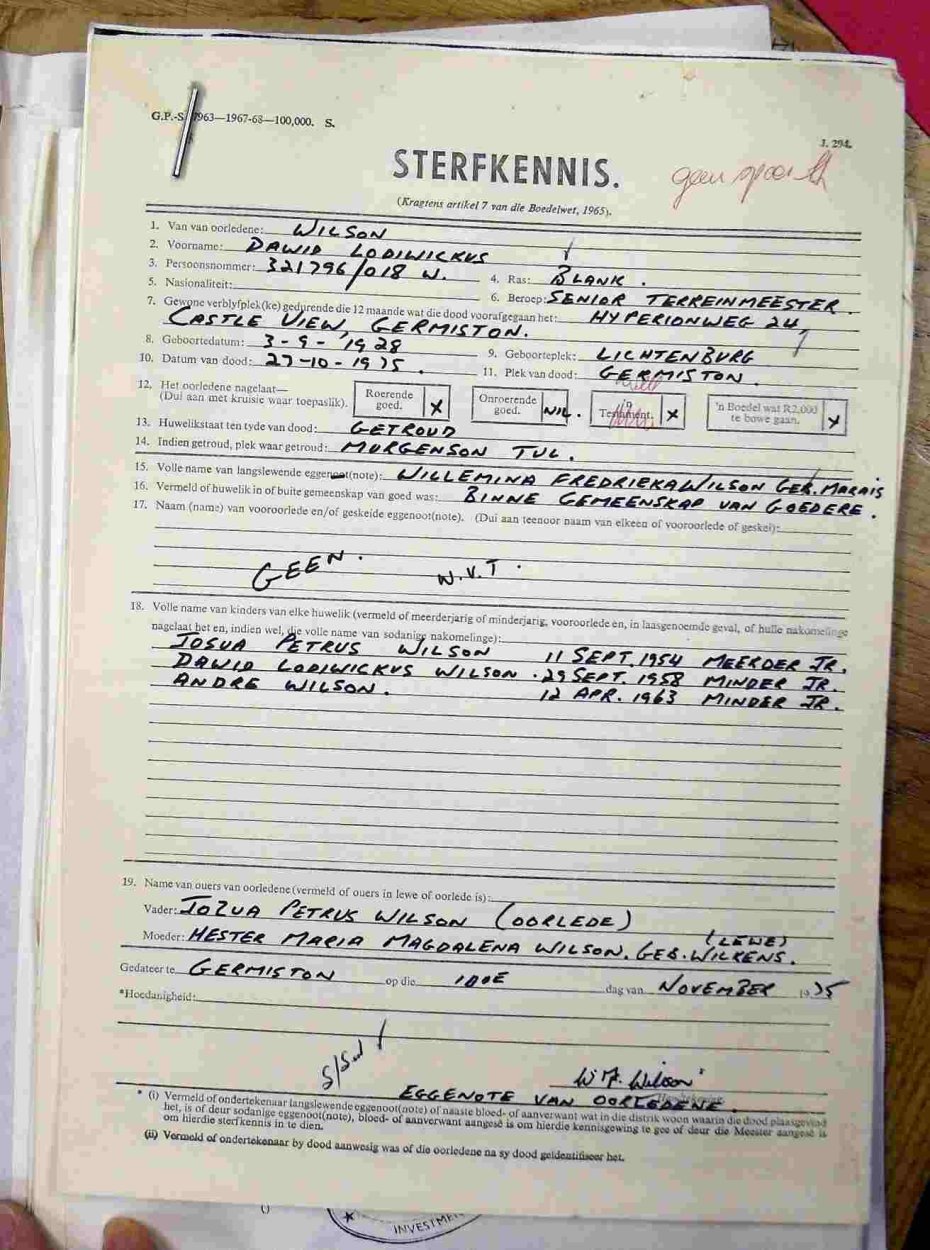 G.P.-S. 1963—1967-68—100,000. S.
J. 294.
STERFKENNIS.
geen
(Kragtens artikel 7 van die Boedelwet, 1965).
1. Van van oorledene: WILSON
2. Voorname: DAWID LODIWICKUS
3. Persoonsnommer: 321796/018 W. 4. Ras: BLANK.
5. Nasionaliteit: 6. Beroep: SENIOR TERREINMEESTER.
7. Gewone verblyfplek(ke) gedurende die 12 maande wat die dood voorafgegaan het: HYPERIONWEG 24,
CASTLE VIEW, GERMISTON.
8. Geboortedatum: 3-9-1928 9. Geboorteplek: LICHTENBURG
10. Datum van dood: 27-10-1975. 11. Plek van dood: GERMISTON.
12. Het oorledene nagelaat—
(Dui aan met kruisie waar toepaslik).
Roerende goed. X
Onroerende goed. NIL.
Testament. X
'n Boedel wat R2,000 te bowe gaan. X
13. Huwelikstaat ten tyde van dood: GETROUD
14. Indien getroud, plek waar getroud: MORGENSON TVL.
15. Volle name van langslewende eggenoot(note): WILLEMINA FREDRIEKA WILSON GEB. MARAIS
16. Vermeld of huwelik in of buite gemeenskap van goed was: BINNE GEMEENSKAP VAN GOEDERE.
17. Naam (name) van vooroorlede en/of geskeide eggenoot(note). (Dui aan teenoor naam van elkeen of vooroorlede of geskei):
GEEN. N.V.T.
18. Volle name van kinders van elke huwelik (vermeld of meerderjarig of minderjarig, vooroorlede en, in laasgenoemde geval, of hulle nakomelinge
nagelaat het en, indien wel, die volle name van sodanige nakomelinge):
JOSUA PETRUS WILSON 11 SEPT. 1954 MEERDER JR.
DAWID LODIWICKUS WILSON. 29 SEPT. 1958 MINDER JR.
ANDRE WILSON. 12 APR. 1963 MINDER JR.
19. Name van ouers van oorledene (vermeld of ouers in lewe of oorlede is):
Vader: JOZUA PETRUS WILSON (OORLEDE)
(LEWE)
Moeder: HESTER MARIA MAGDALENA WILSON. GEB. WILKENS.
Gedateer te GERMISTON op die 10DE dag van NOVEMBER 1975
*Hoedanigheid:
W F. Wilson
EGGENOTE VAN OORLEDENE.
* (i) Vermeld of ondertekenaar langslewende eggenoot(note) of naaste bloed- of aanverwant wat in die distrik woon waarin die dood plaasgevind
het, is of deur sodanige eggenoot(note), bloed- of aanverwant aangesê is om hierdie kennisgewing te gee of deur die Meester aangesê is
om hierdie sterfkennis in te dien.
(ii) Vermeld of ondertekenaar by dood aanwesig was of die oorledene na sy dood geïdentifiseer het.